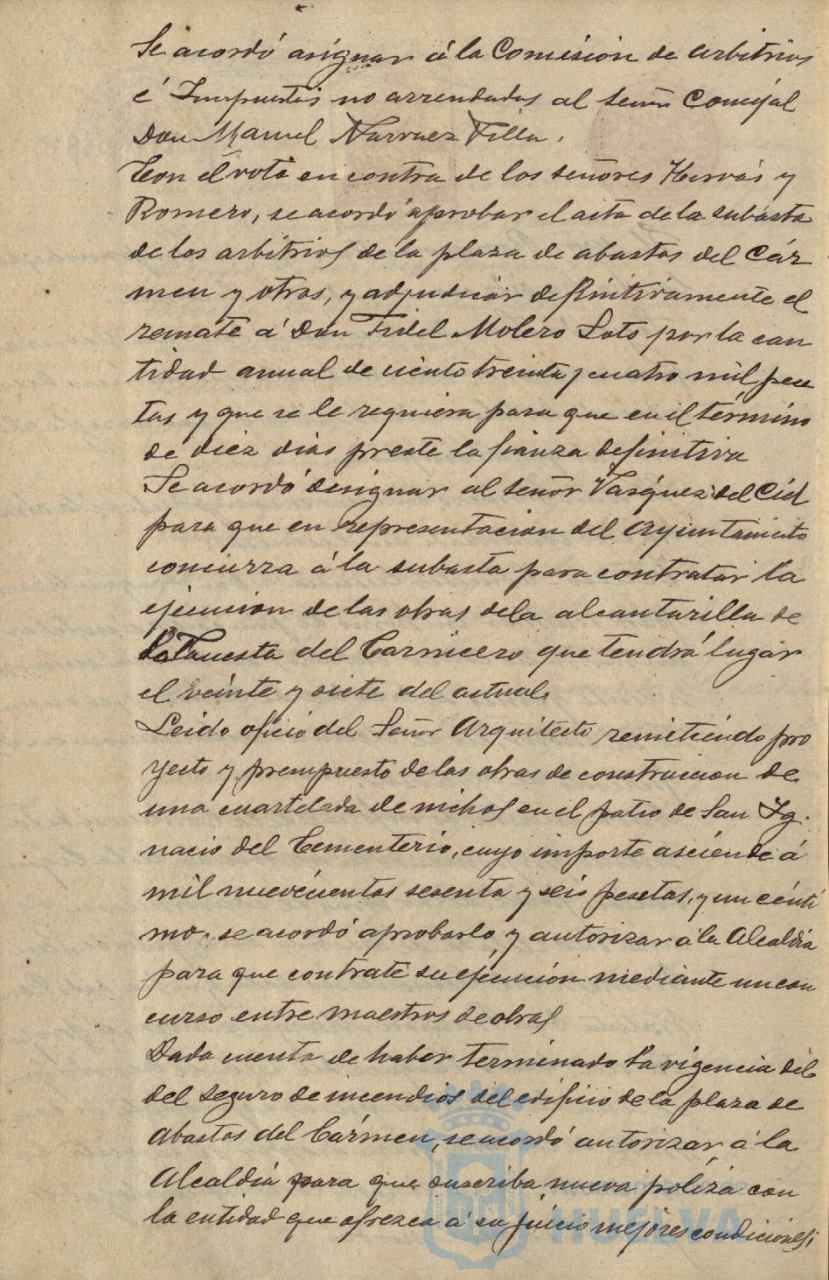 Se acordó asignar á la Comisión de Arbitrios
é Impuestos no arrendados al señor Concejal
Don Manuel Narvaez Villa.
Con el voto en contra de los señores Hervás y
Romero, se acordó aprobar el acta de la subasta
de los arbitrios de la plaza de abastos del Cár
men y otros, y adjudicar definitivamente el
remate á Don Fidel Molero Soto por la can
tidad anual de ciento treinta y cuatro mil pese
tas y que se le requiera para que en el término
de diez dias preste la fianza definitiva
Se acordó designar al señor Vasquez del Cid
para que en representacion del Ayuntamiento
concurra á la subasta para contratar la
ejecucion de las obras de la alcantarilla de
la Cuesta del Carnicero que tendrá lugar
el veinte y siete del actual.
Leido oficio del Señor Arquitecto remitiendo pro
yecto y presupuesto de las obras de construccion de
una cuartelada de nichos en el patio de San Ig.
nacio del Cementerio, cuyo importe asciende á
mil nuevecientas sesenta y seis pesetas, y un cénti
mo. se acordó aprobarlo, y autorizar á la Alcaldía
para que contrate su ejecución mediante un con
curso entre maestros de obras
Dada cuenta de haber terminado la vigencia del
del seguro de incendios del edificio de la plaza de
Abastos del Cármen, se acordó autorizar á la
Alcaldía para que suscriba nueva póliza con
la entidad que ofrezca á su juicio mejores condiciones;
HUELVA